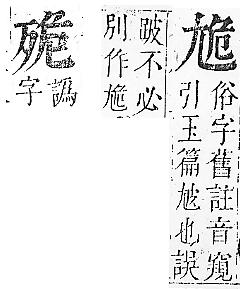 尯
俗字舊註音窺
引玉篇也誤
跛不必
別作尯
譌
字